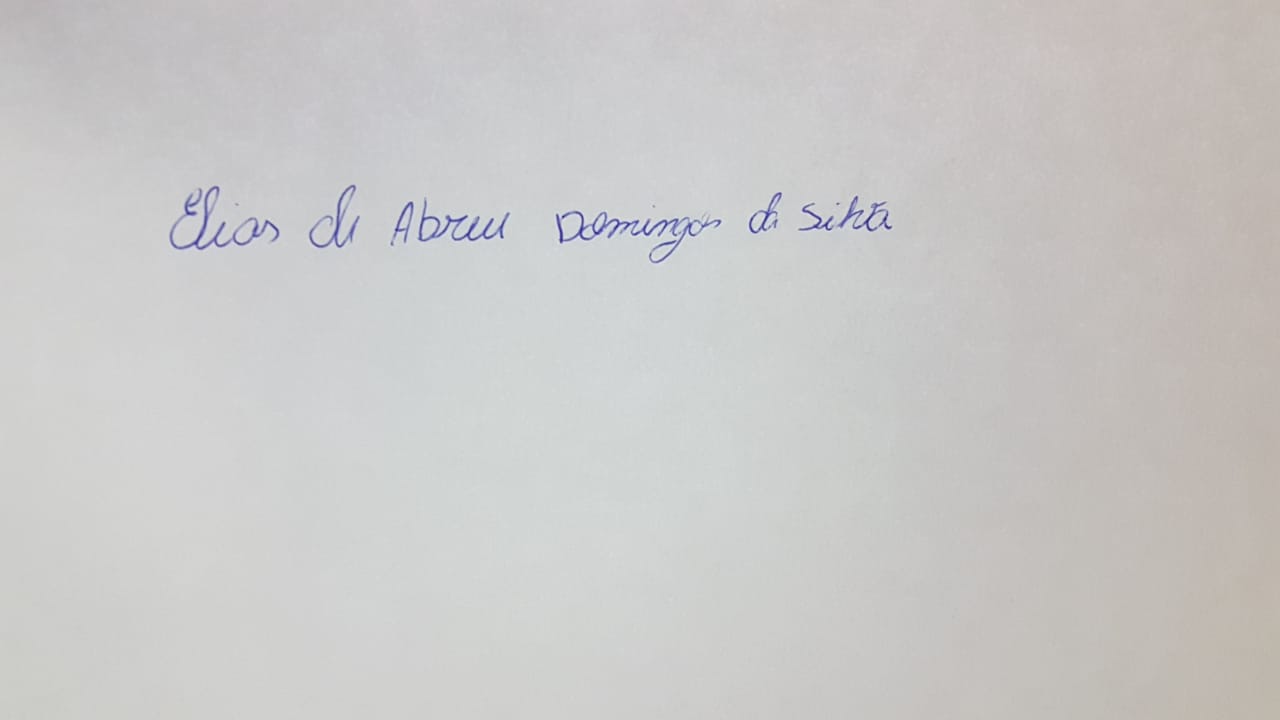 Elias de Abreu Domingos da Silva